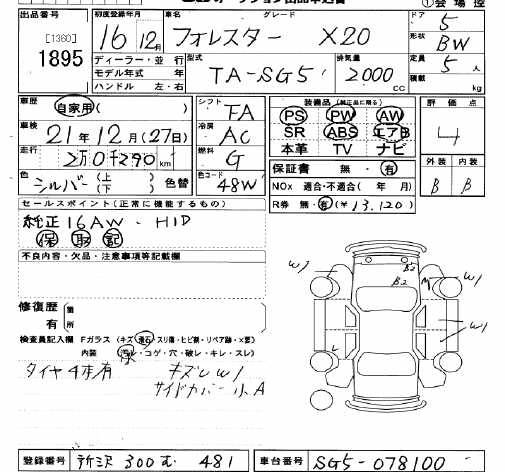 ①会場控
出品番号
[1360]
1895
初度登録年月
16年 12月
車名 グレード
フォレスター X20
ドア 5
形状 BW
ディーラー・並行
モデル年式 年
ハンドル 左・右
型式 TA-SG5
排気量 2000 cc
定員 5人
積載 kg
車歴 自家用( )
車検 21年12月(27日)
走行 2万0千290km
色 シルバー (上) (下) 色替
シフト FA
冷房 AC
燃料 G
色コード 48W
装備品(純正品に限る)
PS PW AW
SR ABS エアB
本革 TV ナビ
保証書 無・有
NOx 適合・不適合( 年 月)
R券 無・有(¥13,120)
評価点
4
外装 内装
B B
セールスポイント(正常に機能するもの)
純正16AW・HID
保 取 記
不良内容・欠品・注意事項等記載欄
修復歴 有 箇所
検査員記入欄 Fガラス(キズ・飛石・スリ傷・ヒビ割・リペア跡・×要)
内装 (汚れ・コゲ・穴・破レ・キレ・スレ)
タイヤ4本有 キズレW1
サイドカバー小A
W1
B2
B2
W1
W1
登録番号 所沢 300 む 481
車台番号 SG5-078100